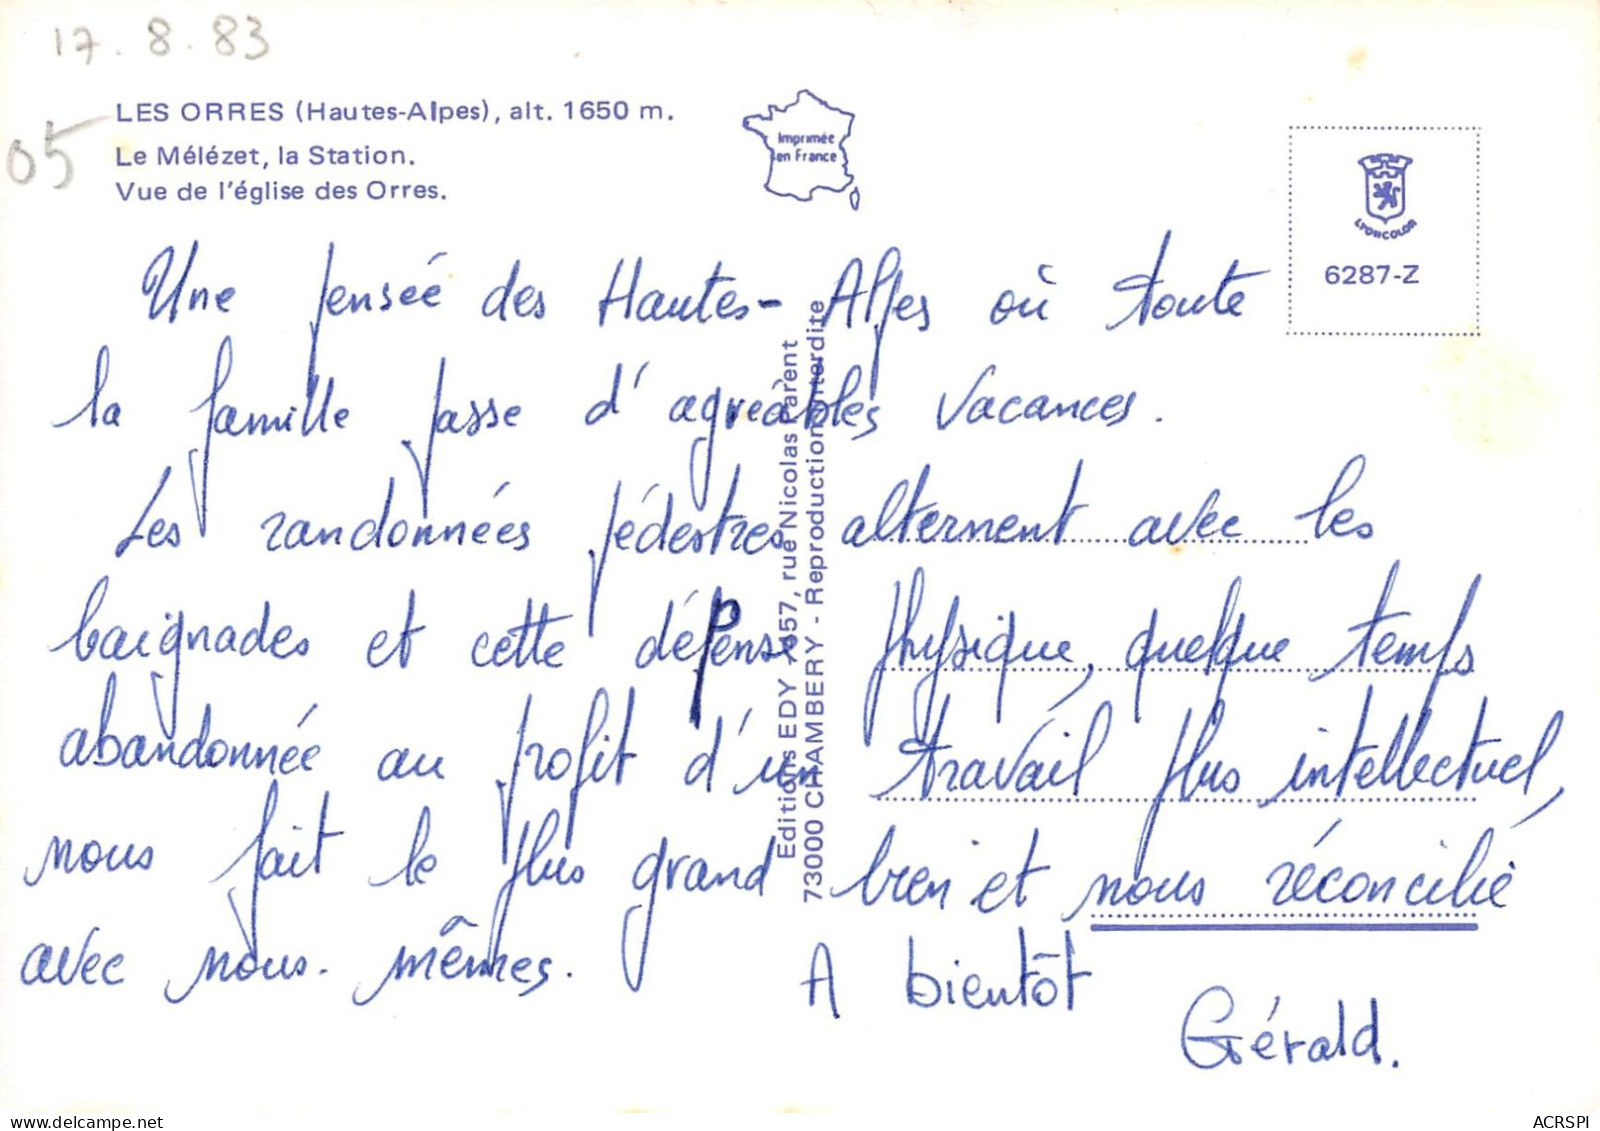 17.8.83
05
LES ORRES (Hautes-Alpes), alt. 1650 m.
Le Mélézet, la Station.
Vue de l'église des Orres.
Imprimée
en France
LYONCOLOR
6287-Z
Une pensée des Hautes-Alpes où toute
la famille passe d'agréables vacances.
Les randonnées pédestres alternent avec les
baignades et cette dépense physique, quelque temps
abandonnée au profit d'un travail plus intellectuel,
nous fait le plus grand bien et nous réconcilie
avec nous-mêmes. A bientôt
Gérald.
73000 CHAMBERY - Reproduction interdite
delcampe.net
ACRSPI